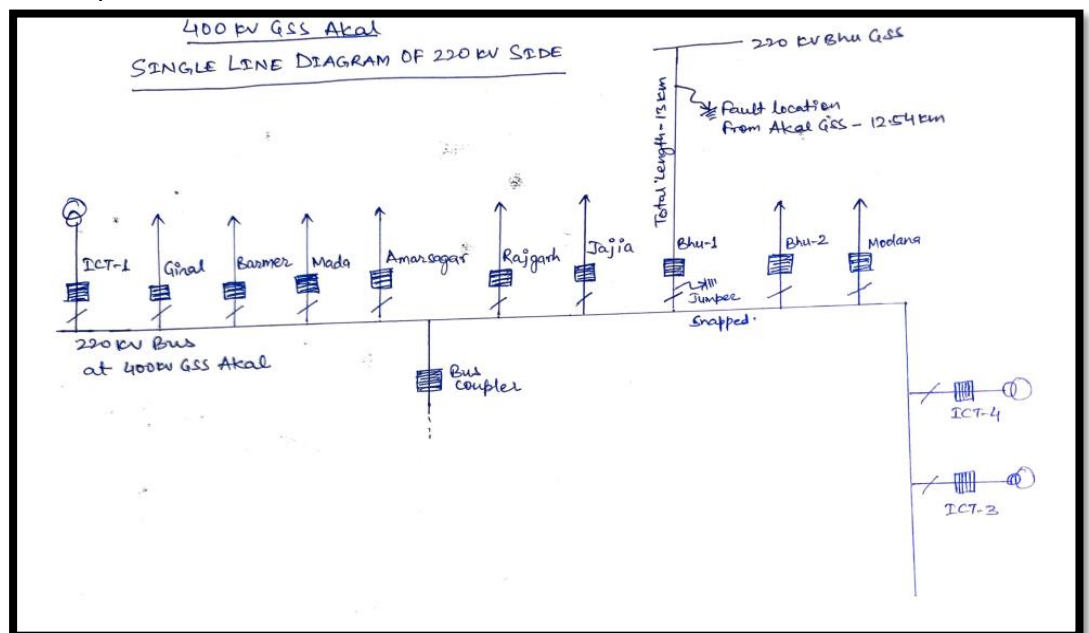 400 KV GSS Akal
SINGLE LINE DIAGRAM OF 220 KV SIDE
220 KV Bhu GSS
Total length - 13 km
Fault location
from Akal GSS - 12.54 km
ICT-1
Giral
Barmer
Mada
Amarsagar
Rajgarh
Jajia
Bhu-1
Bhu-2
Modana
Jumper
Snapped.
220 KV Bus
at 400 KV GSS Akal
Bus
coupler
ICT-4
ICT-3